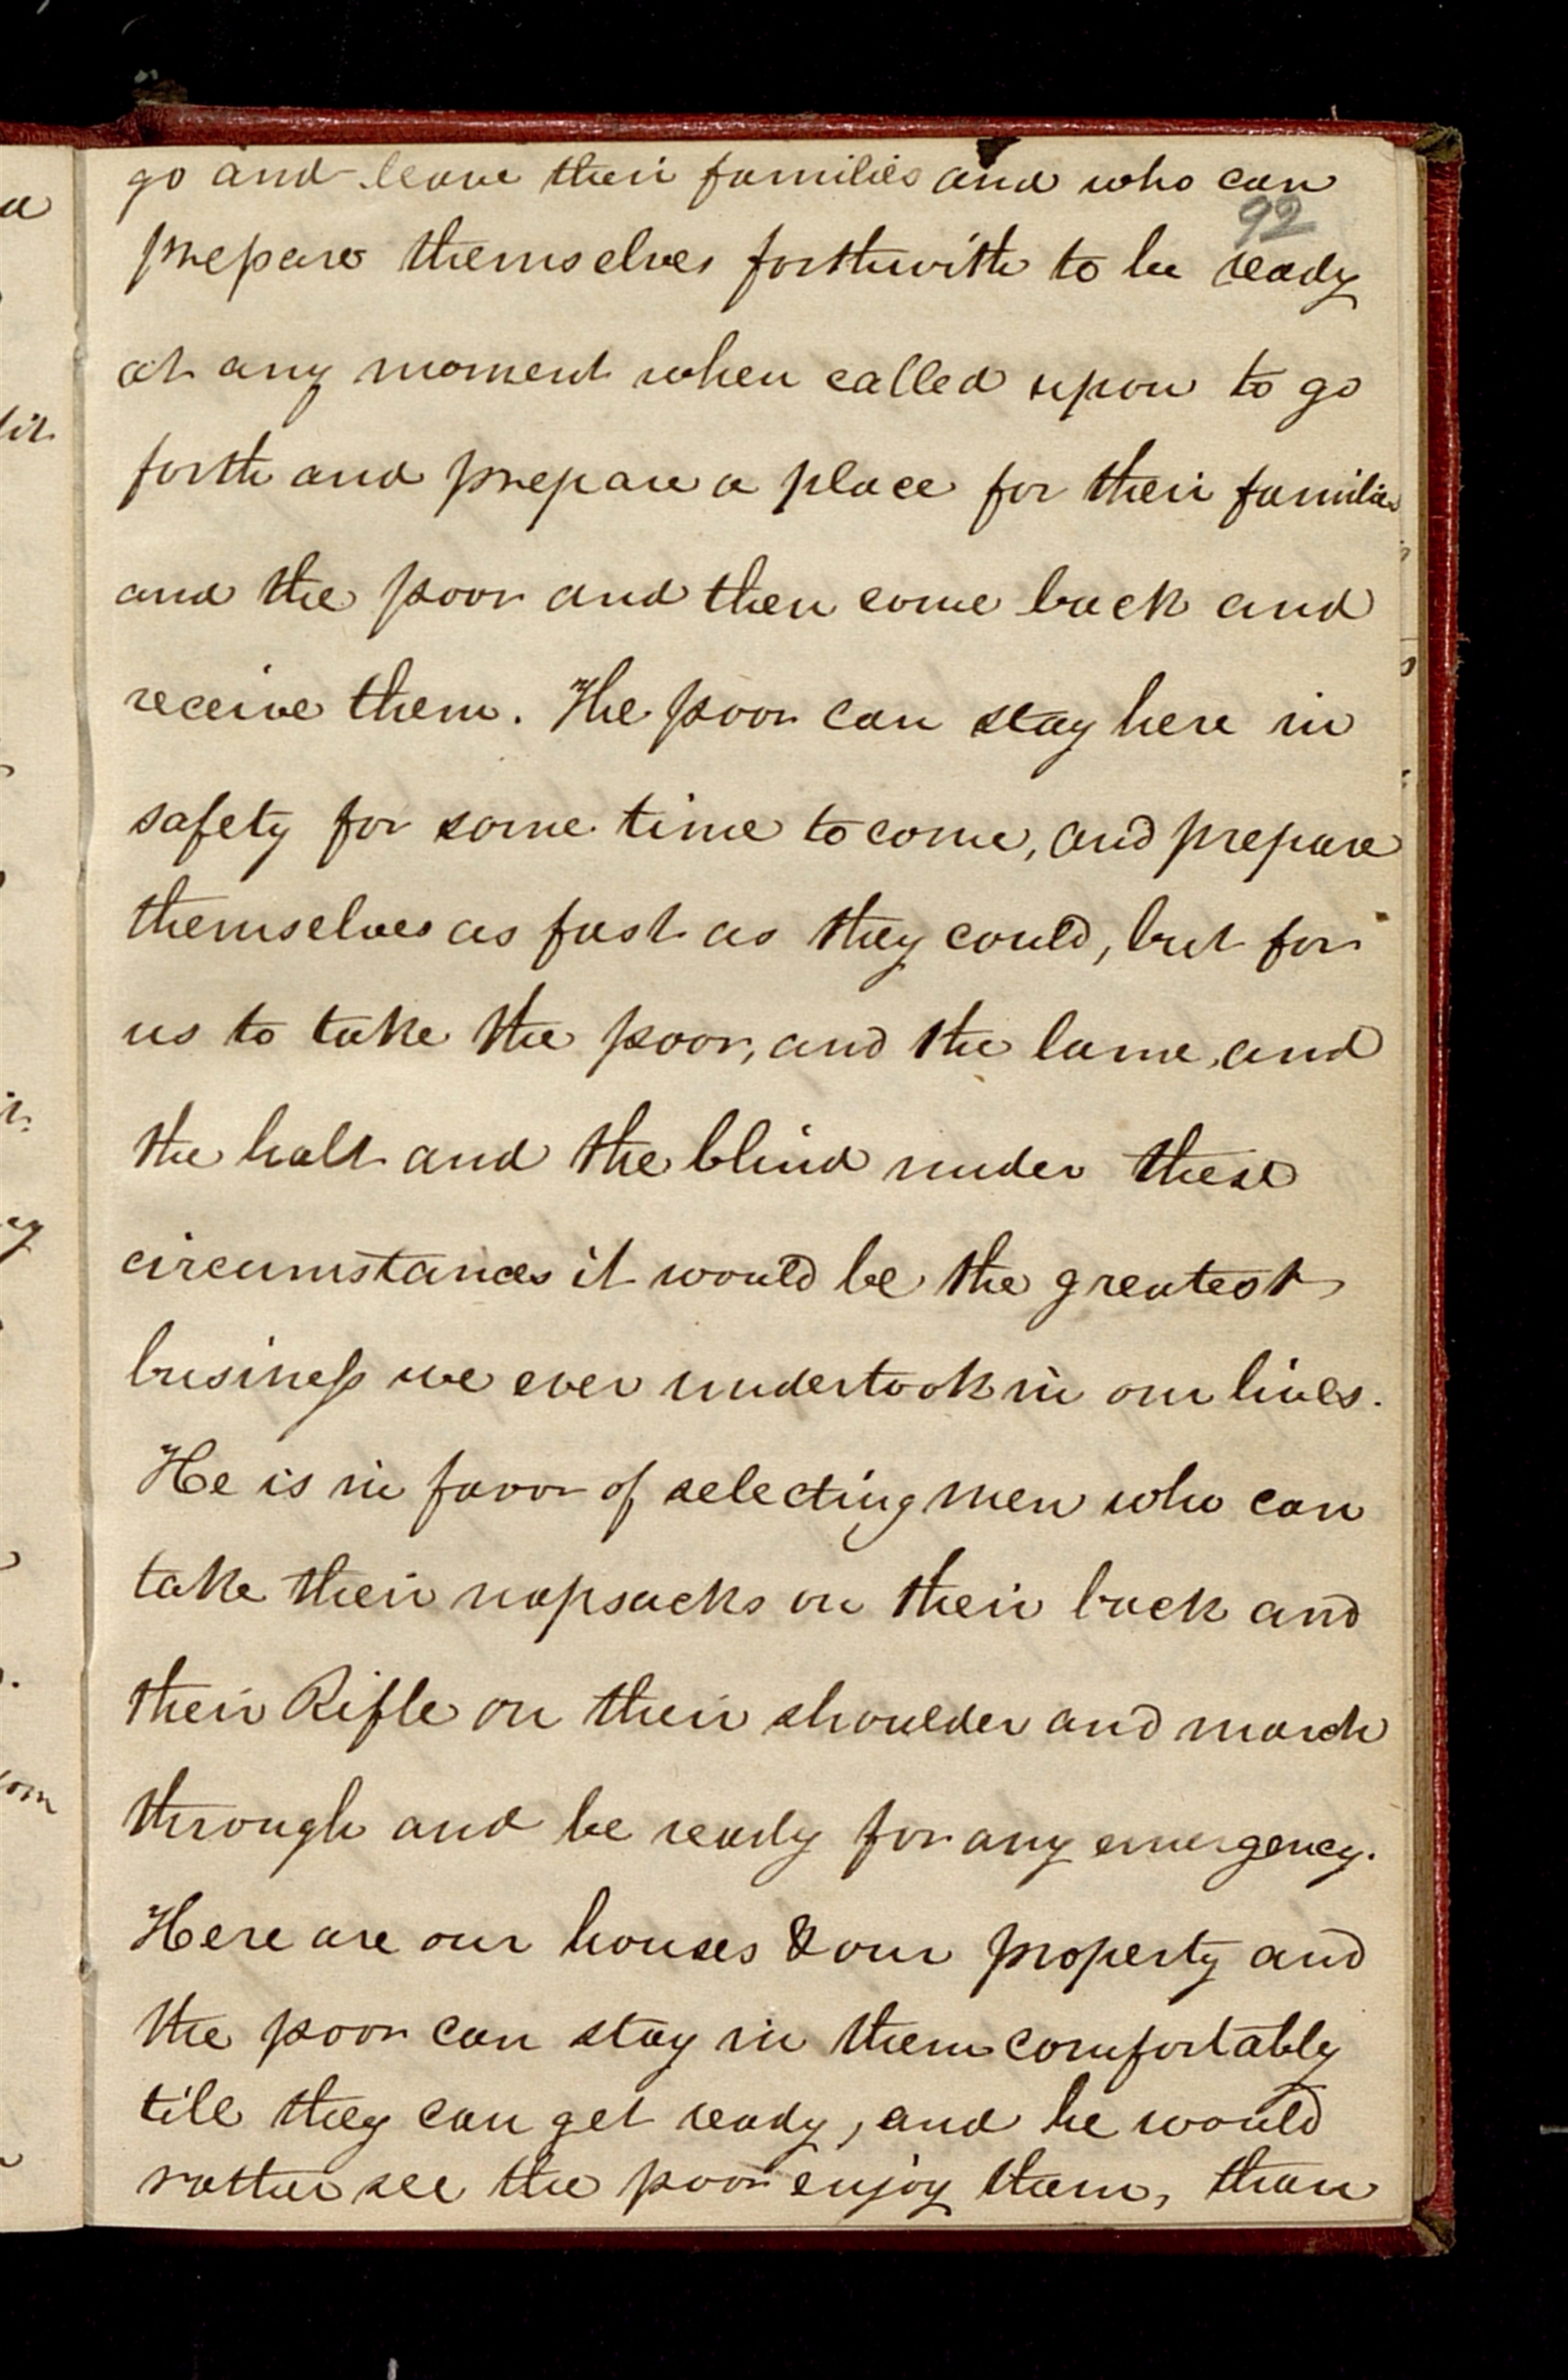 go and leave their families and who can
92
prepare themselves forthwith to be ready
at any moment when called upon to go
forth and prepare a place for their families
and the poor and then come back and
receive them. The poor can stay here in
safety for some time to come, and prepare
themselves as fast as they could, but for
us to take the poor, and the lame, and
the halt and the blind under these
circumstances it would be the greatest
business we ever undertook in our lives.
He is in favor of selecting men who can
take their napsacks on their back and
their Rifle on their shoulder and march
through and be ready for any emergency.
Here are our houses & our property and
the poor can stay in them comfortably
till they can get ready, and he would
rather see the poor enjoy them, than